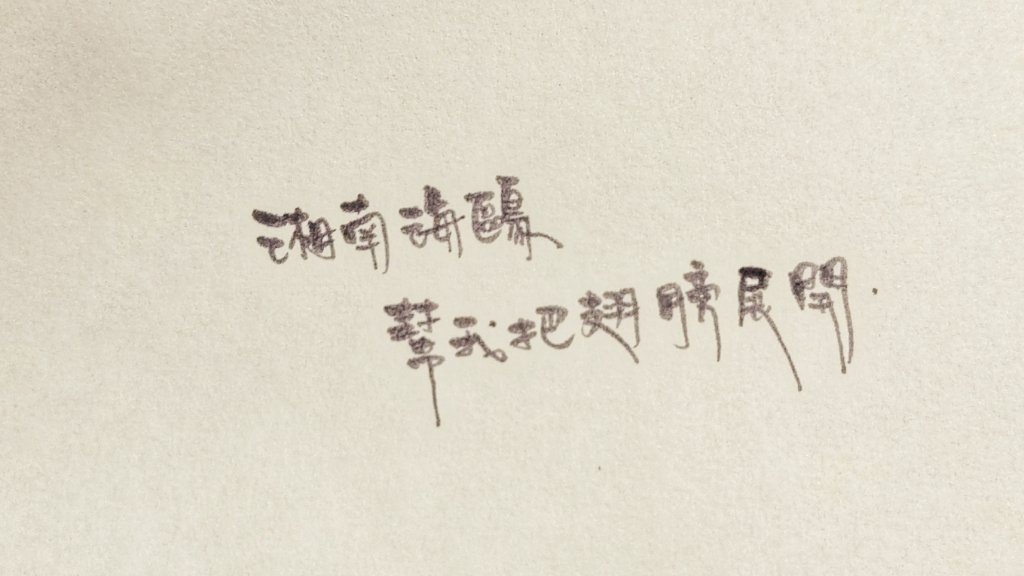 湘南海鷗
幫我把翅膀展開.